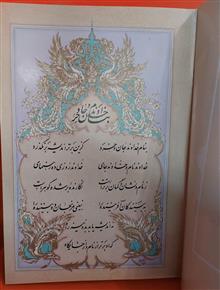 بنام خداوند جان و خرد
بنام خداوند جان و خرد کزین برتر اندیشه برنگذرد
خداوند نام و خداوند جای خداوند روزی ده رهنمای
ز نام و نشان و گمان برترست نگارنده بر شده گوهرست
به بینندگان آفریننده را نبینی مرنجان دو بیننده را
نه اندیشه یابد بدو نیز راه
که او برتر از نام و از جایگاه